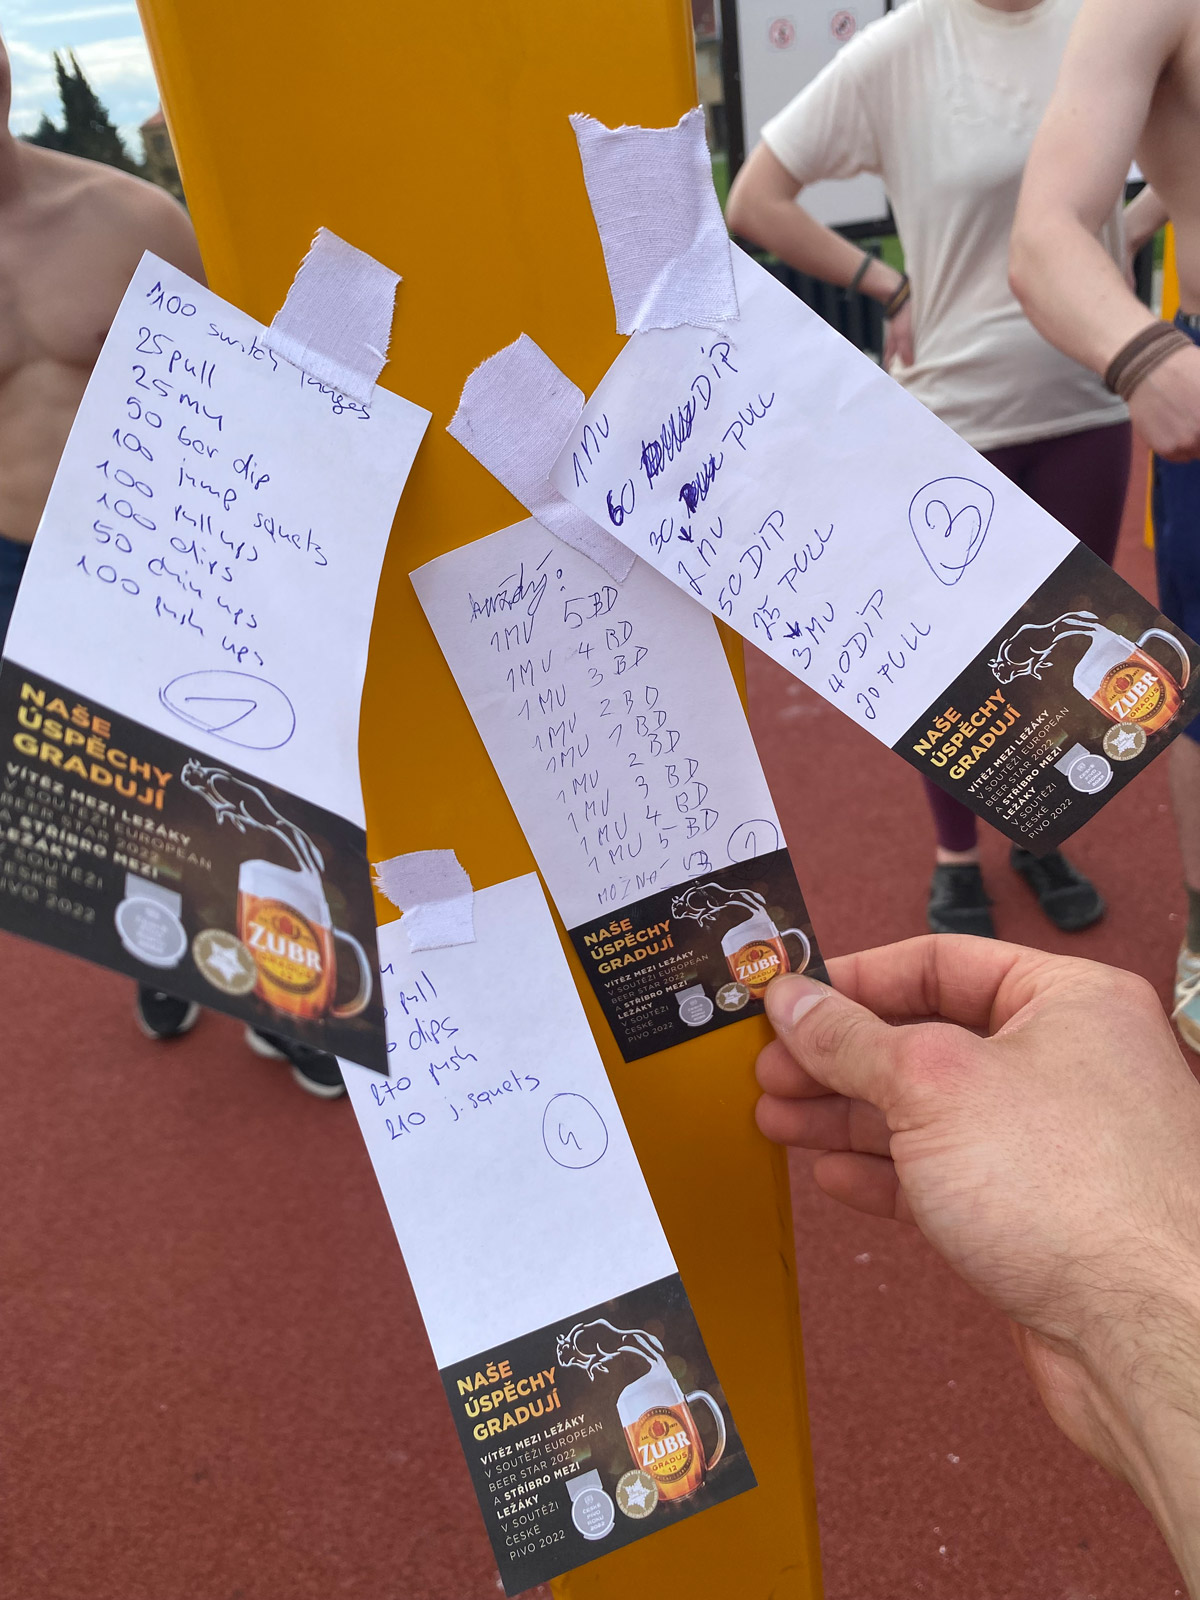 100 switch lunges
25 pull
25 mu
50 bar dip
100 jump squats
100 pull ups
100 dips
50 chin ups
100 push ups
1
NAŠE
ÚSPĚCHY
GRADUJÍ
VÍTĚZ MEZI LEŽÁKY
V SOUTĚŽI EUROPEAN
BEER STAR 2022
A STŘÍBRO MEZI
LEŽÁKY
V SOUTĚŽI
ČESKÉ
PIVO 2022
ZUBR
GRADUS
12
každý:
1MU 5 BD
1MU 4 BD
1MU 3 BD
1MU 2 BD
1MU 1 BD
1MU 2 BD
1MU 3 BD
1MU 4 BD
1MU 5 BD
MOŽNÁ
NAŠE
ÚSPĚCHY
GRADUJÍ
VÍTĚZ MEZI LEŽÁKY
V SOUTĚŽI EUROPEAN
BEER STAR 2022
A STŘÍBRO MEZI
LEŽÁKY
V SOUTĚŽI
ČESKÉ
PIVO 2022
ZUBR
1 MU
60 DIP
30 PULL
2 MU
50 DIP
25 PULL
3 MU
40 DIP
20 PULL
3
NAŠE
ÚSPĚCHY
GRADUJÍ
VÍTĚZ MEZI LEŽÁKY
V SOUTĚŽI EUROPEAN
BEER STAR 2022
A STŘÍBRO MEZI
LEŽÁKY
V SOUTĚŽI
ČESKÉ
PIVO 2022
ZUBR
GRADUS
12
pull
dips
270 push
210 j. squats
4
NAŠE
ÚSPĚCHY
GRADUJÍ
VÍTĚZ MEZI LEŽÁKY
V SOUTĚŽI EUROPEAN
BEER STAR 2022
A STŘÍBRO MEZI
LEŽÁKY
V SOUTĚŽI
ČESKÉ
PIVO 2022
ZUBR
GRADUS
12